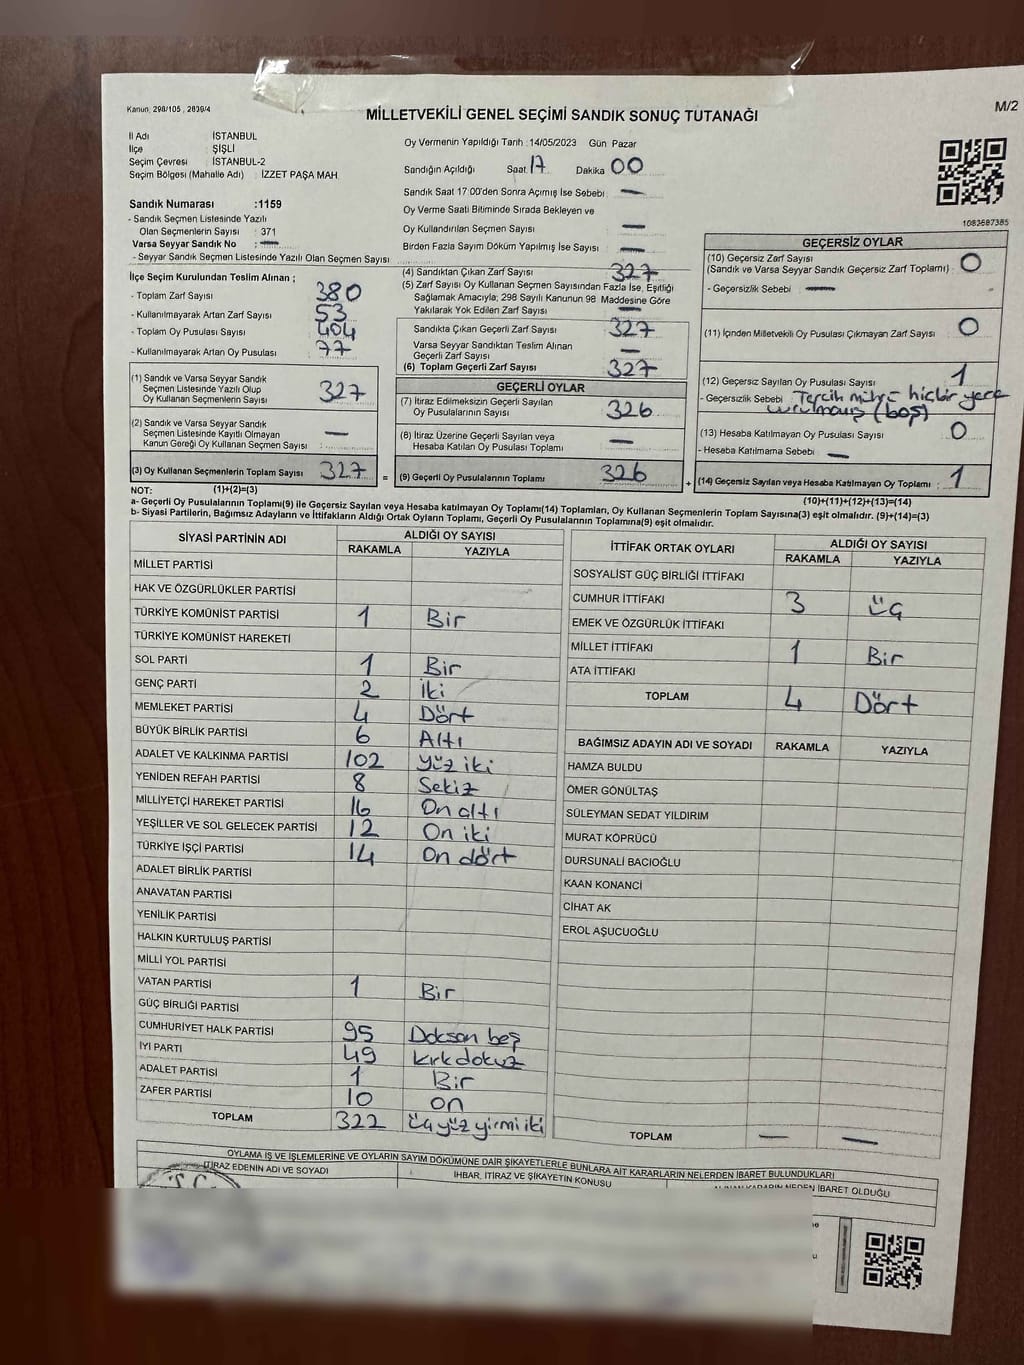 Kanun, 298/105 , 2839/4
M/2
MİLLETVEKİLİ GENEL SEÇİMİ SANDIK SONUÇ TUTANAĞI
İl Adı İSTANBUL
İlçe ŞİŞLİ
Seçim Çevresi İSTANBUL-2
Seçim Bölgesi (Mahalle Adı) : İZZET PAŞA MAH
Sandık Numarası :1159
- Sandık Seçmen Listesinde Yazılı
Olan Seçmenlerin Sayısı : 371
Varsa Seyyar Sandık No : —
- Seyyar Sandık Seçmen Listesinde Yazılı Olan Seçmen Sayısı
İlçe Seçim Kurulundan Teslim Alınan ;
- Toplam Zarf Sayısı 380
- Kullanılmayarak Artan Zarf Sayısı 53
- Toplam Oy Pusulası Sayısı 404
- Kullanılmayarak Artan Oy Pusulası 77
(1) Sandık ve Varsa Seyyar Sandık
Seçmen Listesinde Yazılı Olup
Oy Kullanan Seçmenlerin Sayısı 327
(2) Sandık ve Varsa Seyyar Sandık
Seçmen Listesinde Kayıtlı Olmayan
Kanun Gereği Oy Kullanan Seçmen Sayısı : —
(3) Oy Kullanan Seçmenlerin Toplam Sayısı 327 =
Oy Vermenin Yapıldığı Tarih : 14/05/2023 Gün Pazar
Sandığın Açıldığı Saat 17 Dakika 00
Sandık Saat 17:00'den Sonra Açımış İse Sebebi —
Oy Verme Saati Bitiminde Sırada Bekleyen ve
Oy Kullandırılan Seçmen Sayısı —
Birden Fazla Sayım Döküm Yapılmış İse Sayısı —
(4) Sandıktan Çıkan Zarf Sayısı 327
(5) Zarf Sayısı Oy Kullanan Seçmen Sayısından Fazla İse, Eşitliği
Sağlamak Amacıyla; 298 Sayılı Kanunun 98. Maddesine Göre
Yakılarak Yok Edilen Zarf Sayısı —
Sandıkta Çıkan Geçerli Zarf Sayısı 327
Varsa Seyyar Sandıktan Teslim Alınan
Geçerli Zarf Sayısı —
(6) Toplam Geçerli Zarf Sayısı 327
GEÇERLİ OYLAR
(7) İtiraz Edilmeksizin Geçerli Sayılan
Oy Pusulalarının Sayısı 326
(8) İtiraz Üzerine Geçerli Sayılan veya
Hesaba Katılan Oy Pusulası Toplamı —
(9) Geçerli Oy Pusulalarının Toplamı 326 +
1083687385
GEÇERSİZ OYLAR
(10) Geçersiz Zarf Sayısı
(Sandık ve Varsa Seyyar Sandık Geçersiz Zarf Toplamı) : 0
- Geçersizlik Sebebi : —
(11) İçinden Milletvekili Oy Pusulası Çıkmayan Zarf Sayısı : 0
(12) Geçersiz Sayılan Oy Pusulası Sayısı : 1
- Geçersizlik Sebebi : Tercih mührü hiçbir yere
vurulmamış (boş)
(13) Hesaba Katılmayan Oy Pusulası Sayısı : 0
- Hesaba Katılmama Sebebi : —
(14) Geçersiz Sayılan veya Hesaba Katılmayan Oy Toplamı : 1
NOT: (1)+(2)=(3)
(10)+(11)+(12)+(13)=(14)
a- Geçerli Oy Pusulalarının Toplamı(9) ile Geçersiz Sayılan veya Hesaba katılmayan Oy Toplamı(14) Toplamları, Oy Kullanan Seçmenlerin Toplam Sayısına(3) eşit olmalıdır. (9)+(14)=(3)
b- Siyasi Partilerin, Bağımsız Adayların ve İttifakların Aldığı Ortak Oyların Toplamı, Geçerli Oy Pusulalarının Toplamına(9) eşit olmalıdır.
SİYASİ PARTİNİN ADI ALDIĞI OY SAYISI
RAKAMLA YAZIYLA
MİLLET PARTİSİ
HAK VE ÖZGÜRLÜKLER PARTİSİ
TÜRKİYE KOMÜNİST PARTİSİ 1 Bir
TÜRKİYE KOMÜNİST HAREKETİ
SOL PARTİ 1 Bir
GENÇ PARTİ 2 İki
MEMLEKET PARTİSİ 4 Dört
BÜYÜK BİRLİK PARTİSİ 6 Altı
ADALET VE KALKINMA PARTİSİ 102 Yüz iki
YENİDEN REFAH PARTİSİ 8 Sekiz
MİLLİYETÇİ HAREKET PARTİSİ 16 On altı
YEŞİLLER VE SOL GELECEK PARTİSİ 12 On iki
TÜRKİYE İŞÇİ PARTİSİ 14 On dört
ADALET BİRLİK PARTİSİ
ANAVATAN PARTİSİ
YENİLİK PARTİSİ
HALKIN KURTULUŞ PARTİSİ
MİLLİ YOL PARTİSİ
VATAN PARTİSİ 1 Bir
GÜÇ BİRLİĞİ PARTİSİ
CUMHURİYET HALK PARTİSİ 95 Doksan beş
İYİ PARTİ 49 kırk dokuz
ADALET PARTİSİ 1 Bir
ZAFER PARTİSİ 10 on
TOPLAM 322 üçyüz yirmi iki
İTTİFAK ORTAK OYLARI ALDIĞI OY SAYISI
RAKAMLA YAZIYLA
SOSYALİST GÜÇ BİRLİĞİ İTTİFAKI
CUMHUR İTTİFAKI 3 üç
EMEK VE ÖZGÜRLÜK İTTİFAKI
MİLLET İTTİFAKI 1 Bir
ATA İTTİFAKI
TOPLAM 4 Dört
BAĞIMSIZ ADAYIN ADI VE SOYADI RAKAMLA YAZIYLA
HAMZA BULDU
ÖMER GÖNÜLTAŞ
SÜLEYMAN SEDAT YILDIRIM
MURAT KÖPRÜCÜ
DURSUNALİ BACIOĞLU
KAAN KONANCİ
CİHAT AK
EROL AŞUCUOĞLU
TOPLAM — —
OYLAMA İŞ VE İŞLEMLERİNE VE OYLARIN SAYIM DÖKÜMÜNE DAİR ŞİKAYETLERLE BUNLARA AİT KARARLARIN NELERDEN İBARET BULUNDUKLARI
İTİRAZ EDENİN ADI VE SOYADI İHBAR, İTİRAZ VE ŞİKAYETİN KONUSU ALINAN KARARIN NEDEN İBARET OLDUĞU